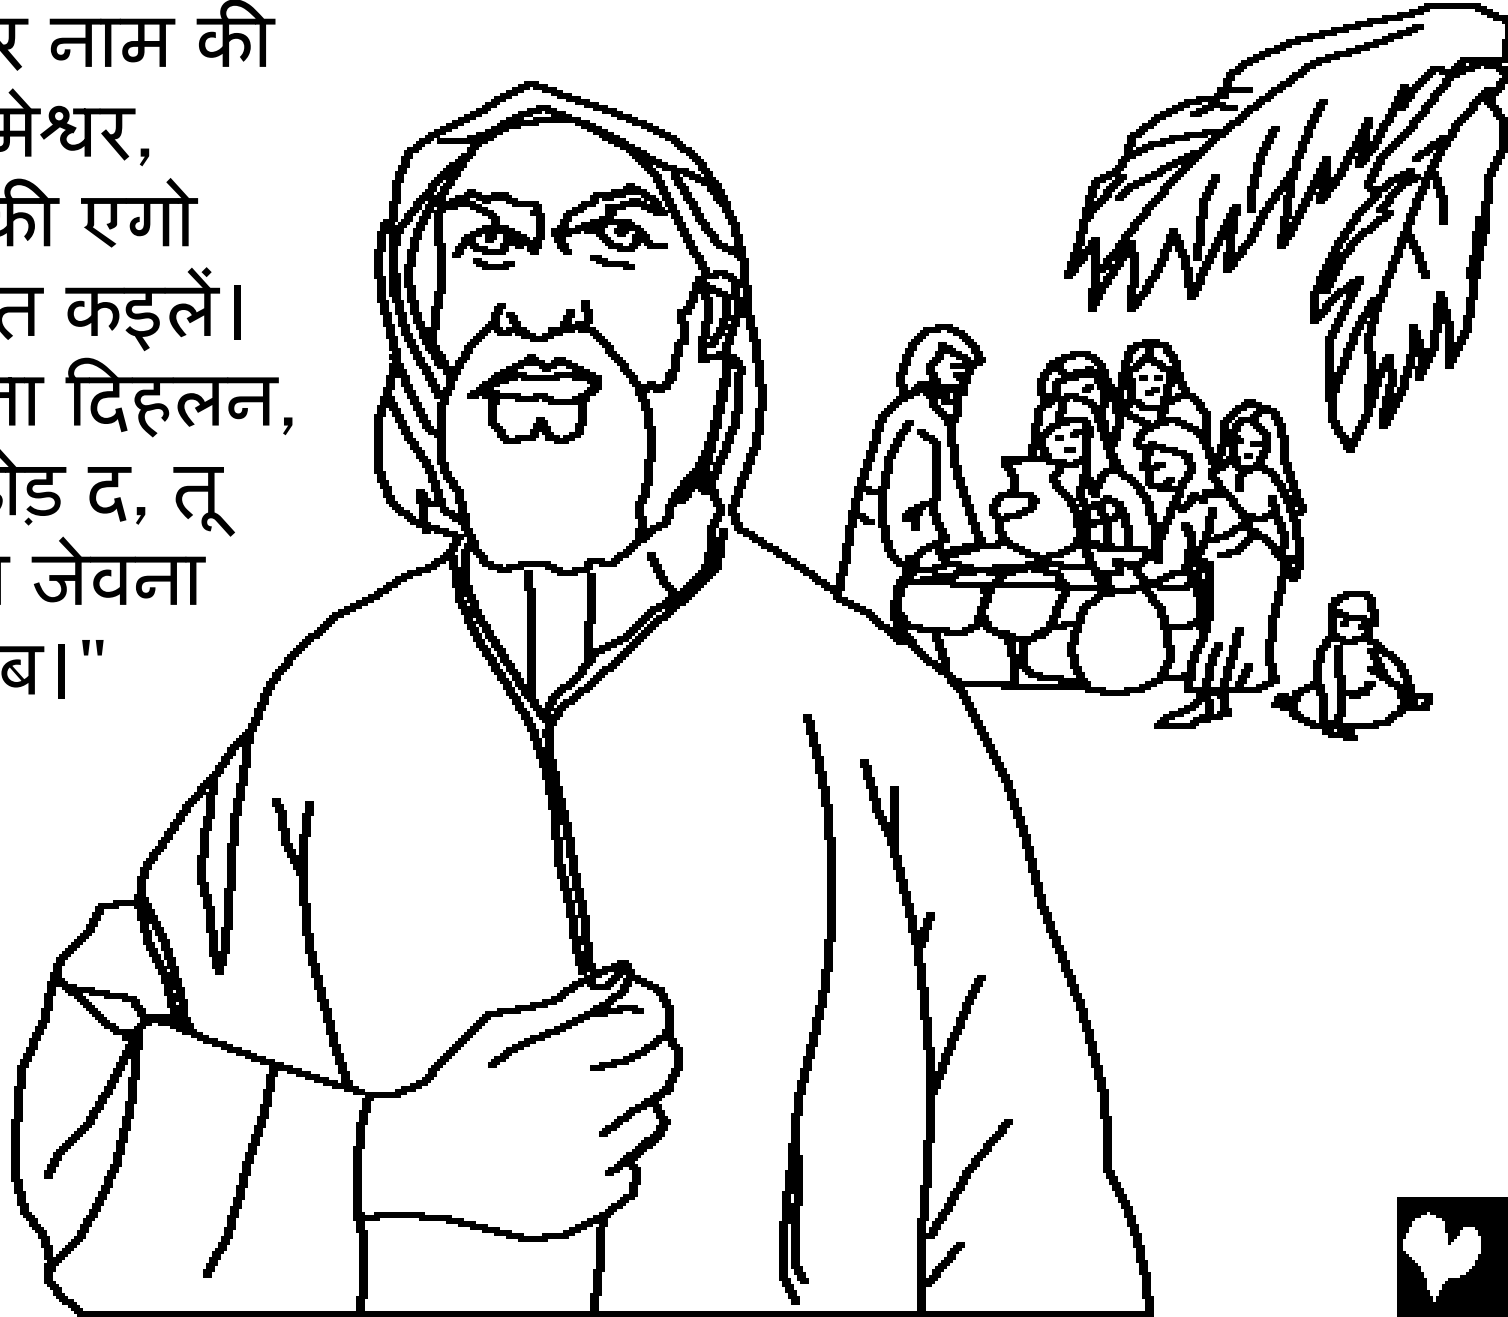 र नाम की
मेश्वर,
की एगो
त कइलें।
ना दिहलन,
ोड़ द, तू
जेवना
ब।"